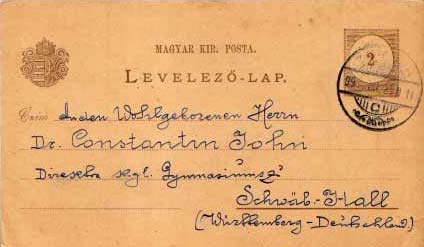 MAGYAR KIR. POSTA.
LEVELEZŐ-LAP.
2
Czím Wohlgeborenen Herrn
Dr. Constantin John
Direktor kgl. Gymnasiums
Schwäb.-Hall
(Württemberg-Deutschland)